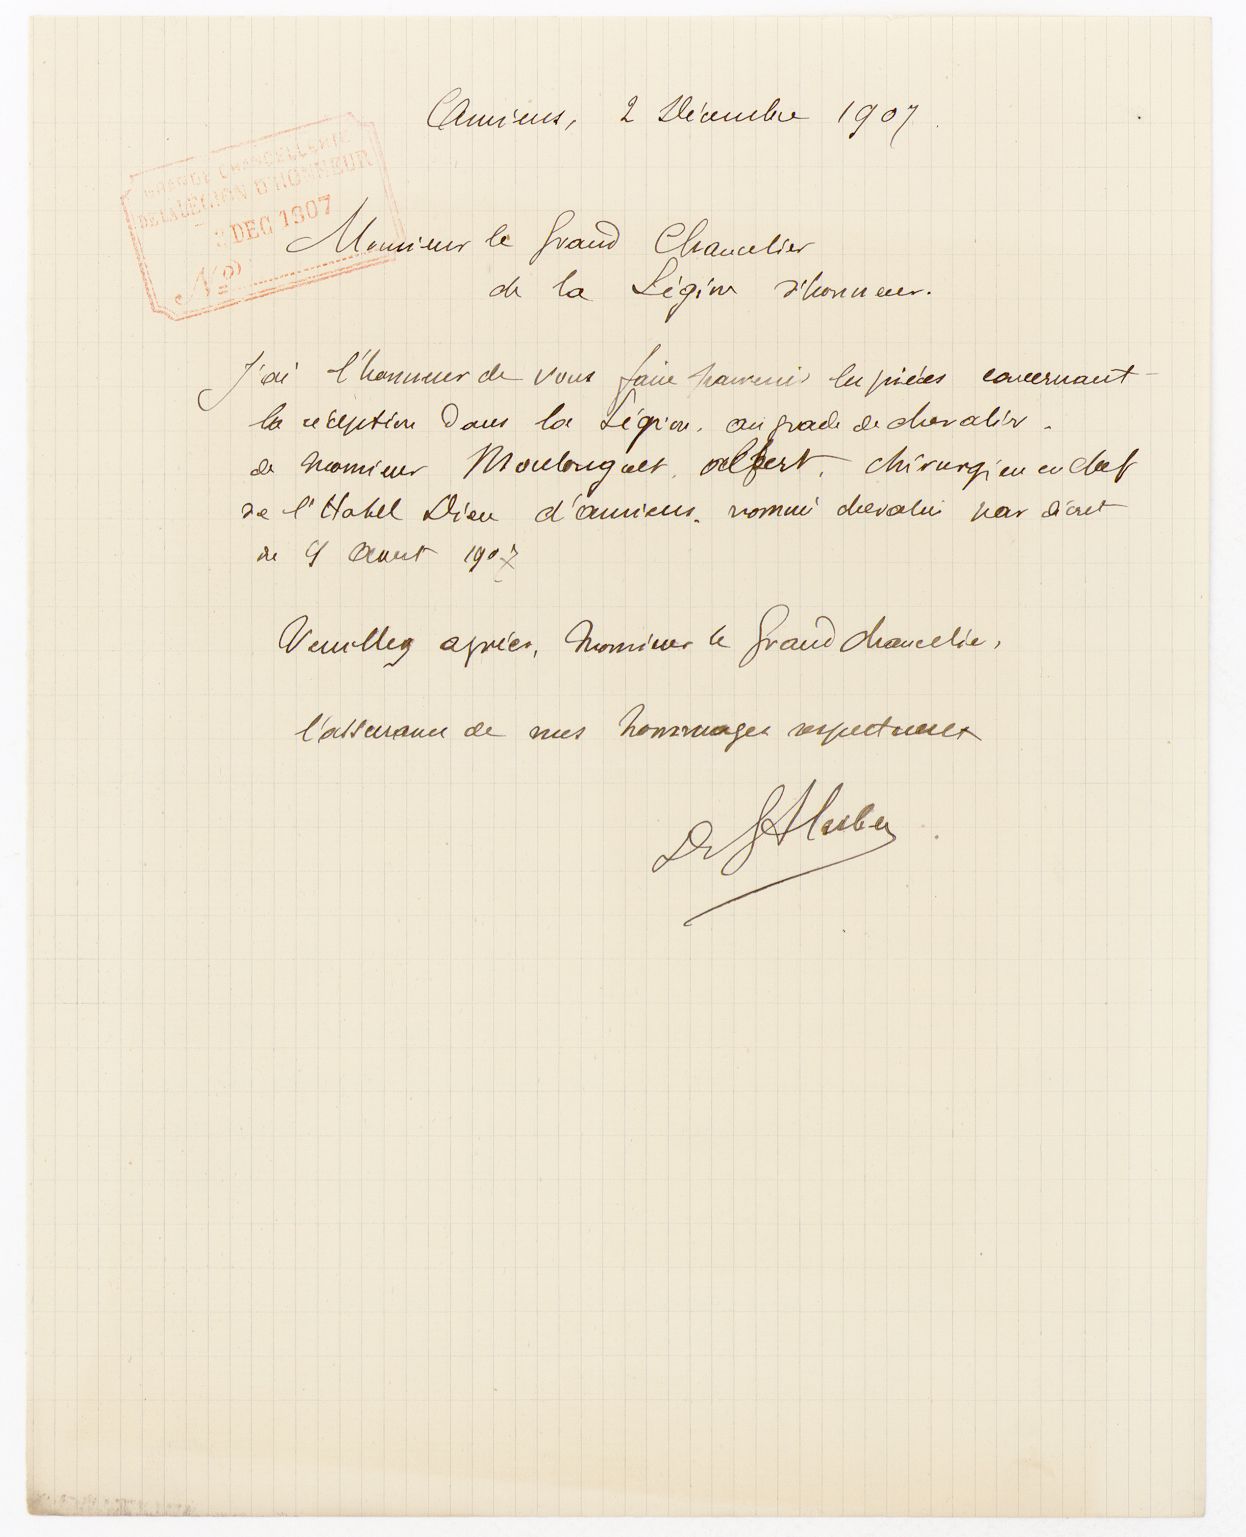 Amiens, 2 Décembre 1907.
GRANDE CHANCELLERIE
DE LA LÉGION D'HONNEUR
DEC 1907
No
Monsieur le Grand Chancelier
de la Légion d'honneur.
J'ai l'honneur de vous faire parvenir les pièces concernant
la réception dans la Légion, au grade de chevalier.
de Monsieur Moulonguet, Albert, chirurgien en chef
de l'Hotel Dieu d'Amiens, nommé chevalier par décret
du 9 Aout 1907
Veuillez agréer, Monsieur le Grand Chancelier,
l'assurance de mes hommages respectueux
Dr